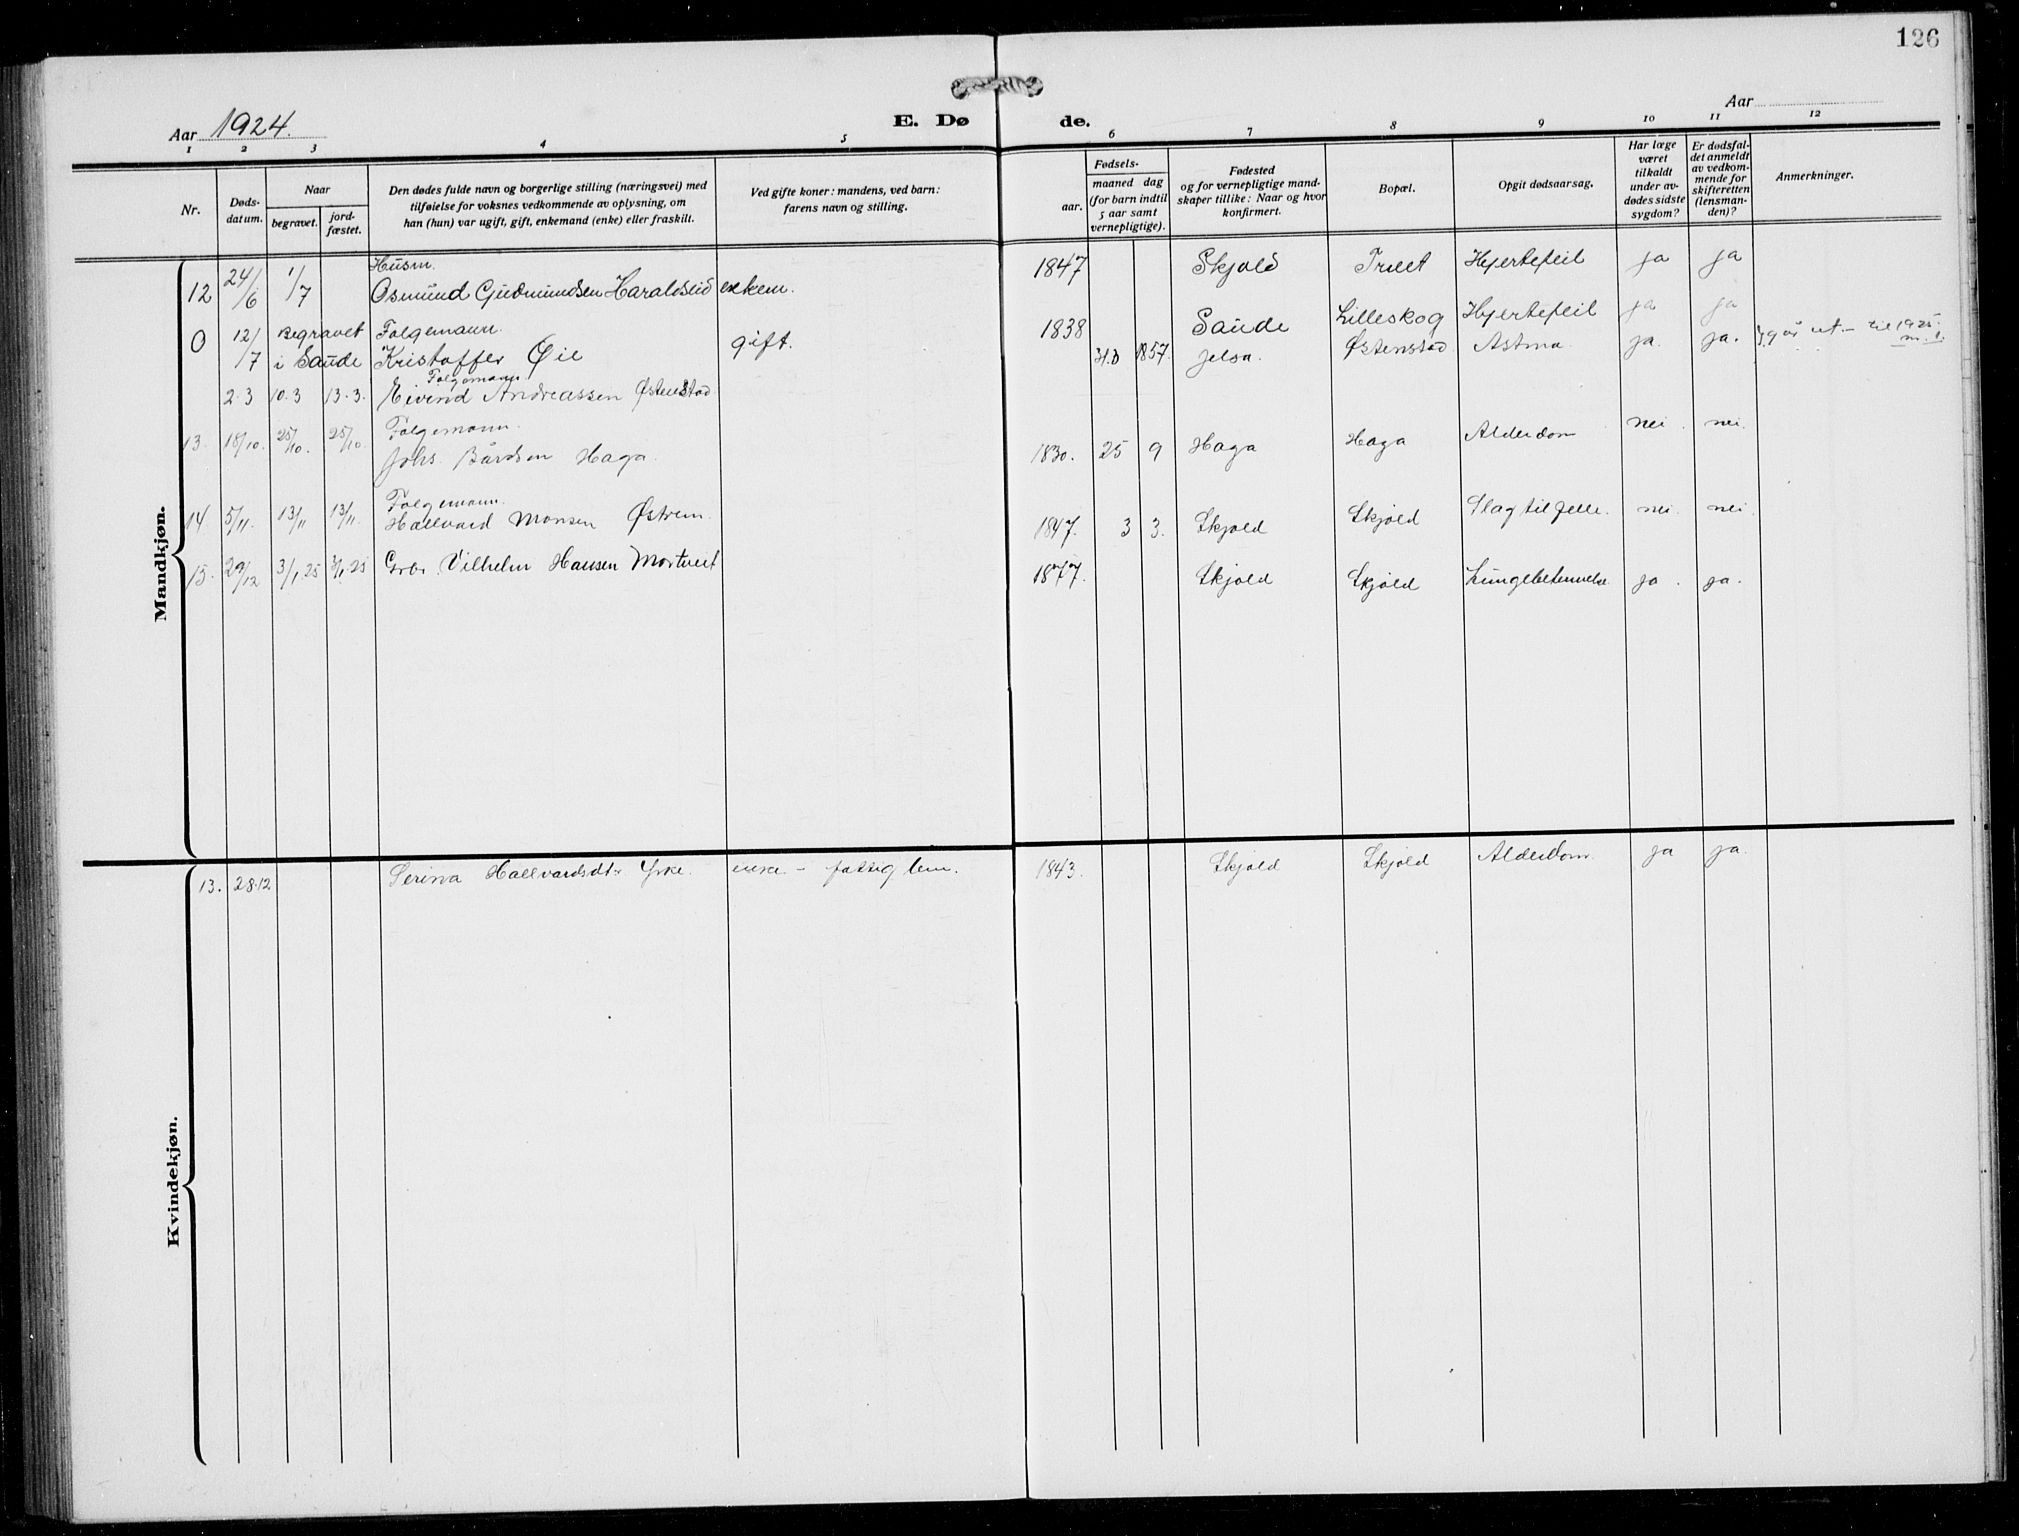 126
Aar 1924.
E. Dø
de.
Aar
1 2 3 4 5 6 7 8 9 10 11 12
Nr.
Døds-
datum.
Naar
begravet.
jord-
fæstet.
Den dødes fulde navn og borgerlige stilling (næringsvei) med
tilføielse for voksnes vedkommende av oplysning, om
han (hun) var ugift, gift, enkemand (enke) eller fraskilt.
Ved gifte koner: mandens, ved barn:
farens navn og stilling.
Fødsels-
aar.
maaned dag
(for barn indtil
5 aar samt
vernepligtige).
Fødested
og for vernepligtige mand-
skaper tillike: Naar og hvor
konfirmert.
Bopæl.
Opgit dødsaarsag.
Har læge
været
tilkaldt
under av-
dødes sidste
sygdom?
Er dødsfal-
det anmeldt
av vedkom-
mende for
skifteretten
(lensman-
den)?
Anmerkninger.
Mandkjøn.
Husm.
12 24/6 1/7 Osmund Gudmundsen Haraldseid enkem. 1847 Skjold Træet Hjertefeil ja ja
0 12/7 Begravet Følgemann. 1838 Saude Lilleskog Hjertefeil ja ja
i Saude Kristoffer Øie gift.
Følgemann
2.3 10.3 13.3. Eivind Andreassen Østenstad 1857. Jelsa. Østenstad Astma. ja. ja. går ut - til 1925
Følgemann.
13. 18/10. 25/10. 25/10 Johs. Bårdsen Haga. 1830. 25 9 Haga Haga Alderdom nei. nei.
Følgemann.
14 5/11. 13/11 13/11. Hallvard Monsen Østrem. 1847. 3 3. Skjold Skjold Slagtilfelle. nei. nei.
15. 29/12 3/1 25 3/1 25 Grbr. Vilhelm Hansen Mortveit 1877. Skjold Skjold Lungebetennelse ja. ja.
Kvindekjøn.
13. 28.12 Serina Hallvardsdtr Yrke. enke - fattiglem. 1843. Skjold Skjold Alderdom. ja ja.